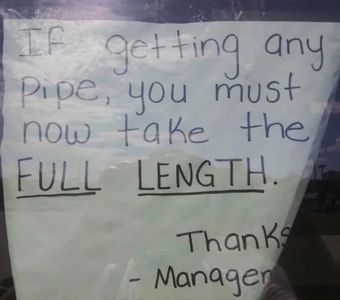 If getting any
pipe, you must
now take the
FULL LENGTH.
Thanks
- Manager